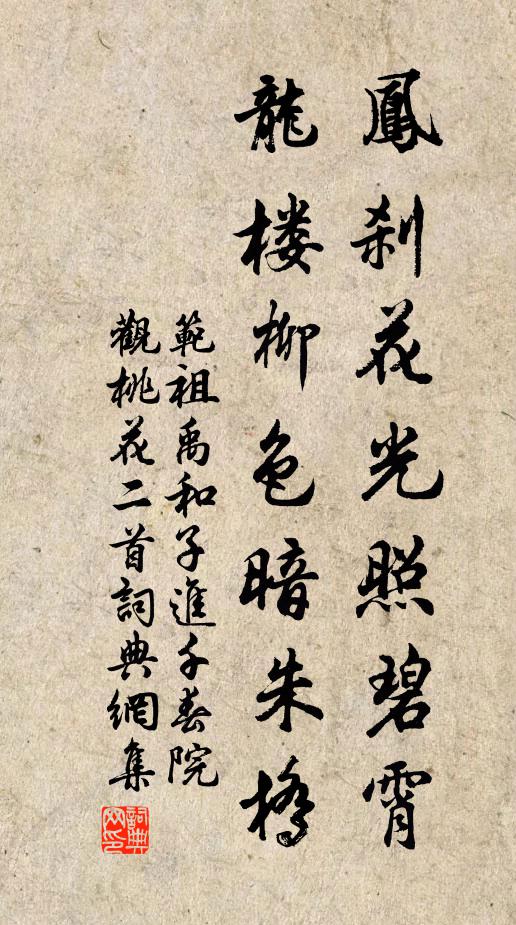 鳳刹花光照碧霄
龍楼柳色暗朱橋
範祖禹和子進千春院
觀桃花二首詞典網集
詞典网印